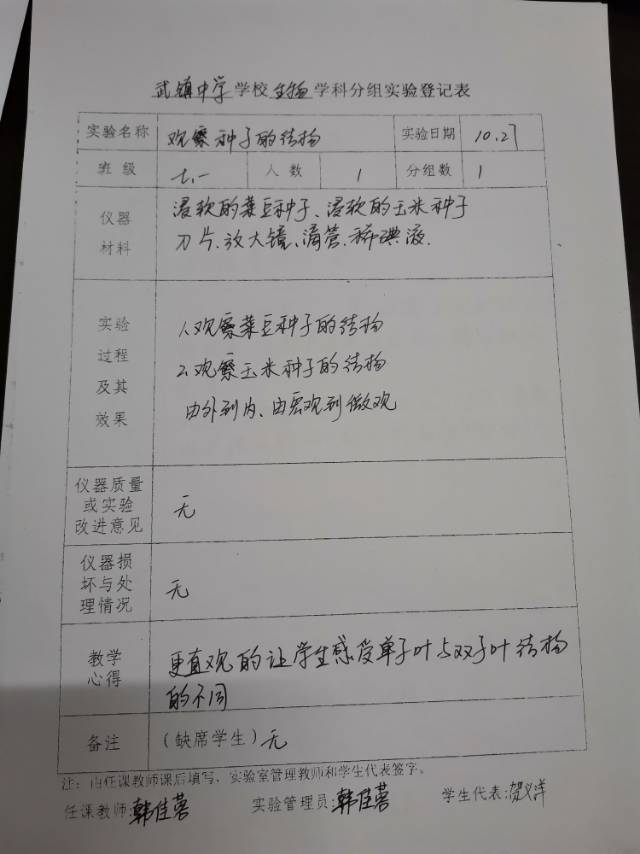 武镇中学学校生物学科分组实验登记表
实验名称 观察种子的结构 实验日期 10.27
班级 七.一 人数 1 分组数 1
仪器材料 浸软的菜豆种子、浸软的玉米种子
刀片.放大镜、滴管.稀碘液.
实验过程及其效果 1.观察菜豆种子的结构
2.观察玉米种子的结构
由外到内、由宏观到微观
仪器质量或实验改进意见 无
仪器损坏与处理情况 无
教学心得 更直观的让学生感受单子叶与双子叶结构
的不同
备注 (缺席学生) 无
注：由任课教师课后填写、实验室管理教师和学生代表签字。
任课教师:韩佳蓉 实验管理员:韩佳蓉 学生代表:贺义洋